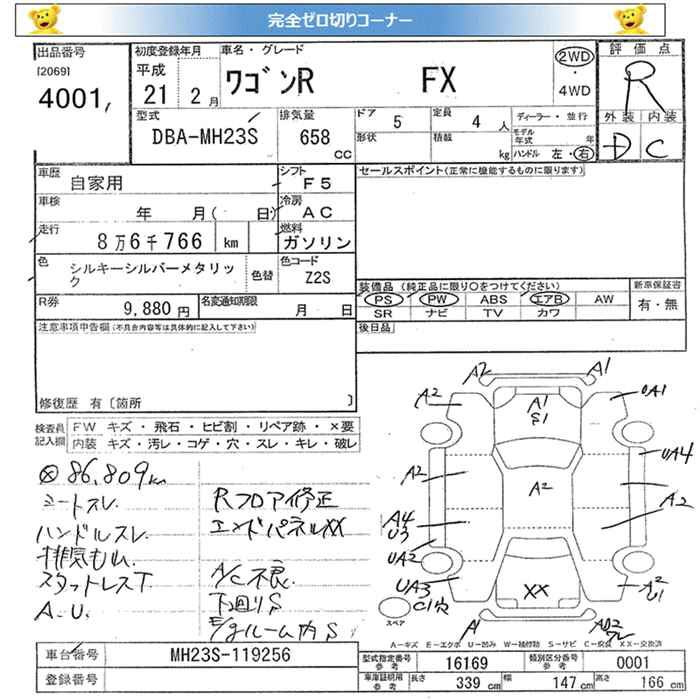 完全ゼロ切りコーナー
出品番号 初度登録年月 車名・グレード 評価点
[2069] 平成 ワゴンR FX 2WD R
4001, 21 2月 ・4WD
型式 排気量 ドア 5 定員 4人 ディーラー・並行 外装 内装
DBA-MH23S 658 cc 形状 積載 kg モデル年式 年 D C
ハンドル 左・右
車歴 自家用 シフト F5 セールスポイント(正常に機能するものに限ります)
車検 年 月( 日) 冷房 AC
走行 8万6千766 km 燃料 ガソリン
色 シルキーシルバーメタリック 色替 色コード Z2S
装備品 (純正品に限り○をつけてください) 新車保証書
PS PW ABS エアB AW 有・無
SR ナビ TV カワ
R券 9,880円 名変通知期限 月 日 後日品
注意事項申告欄(不具合内容等は具体的に記入して下さい)
修復歴 有〔箇所 〕
検査員記入欄 FW キズ・飛石・ヒビ割・リペア跡・×要
内装 キズ・汚レ・コゲ・穴・スレ・キレ・破レ
86,809km
シートスレ Rフロア修正
ハンドルスレ エンドパネルXX
排気もれ
スタットレス下 A/C不良
A.U. 下回りS
E/gルーム内S
A2 A1
A2 A1 UA1
S1
UA4
A2 A2 A2
A4
U3
UA2
UA3 XX A2
U1
C1穴
スペア
A1
A-キズ E-エクボ U-凹み W-補修跡 S-サビ C-腐食 XX-交換済
車台番号 MH23S-119256 型式指定番号 参考 16169 類別区分番号 参考 0001
登録番号 車庫証明用 参考 長さ 339 cm 幅 147 cm 高さ 166 cm